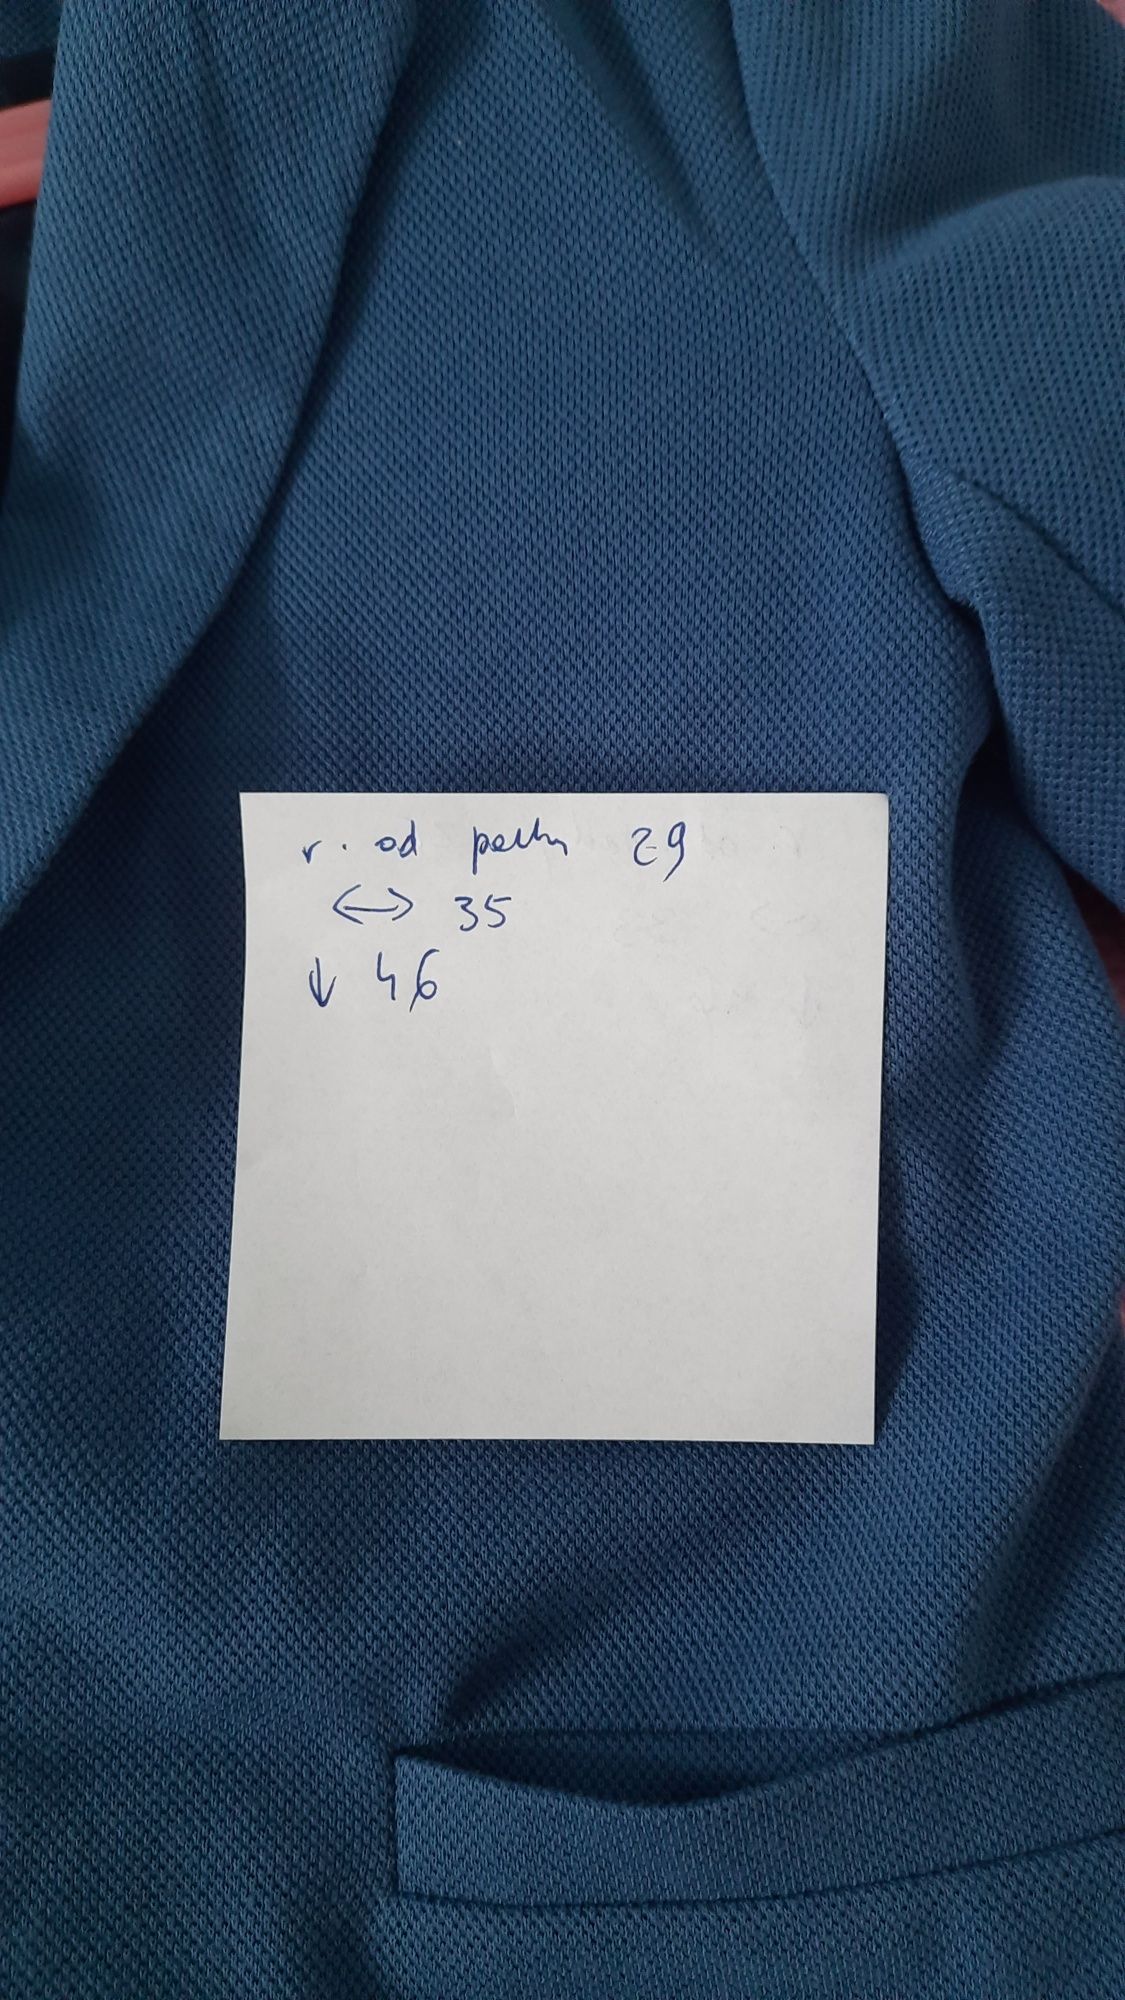 r. od pachy 29
↔ 35
↓ 46